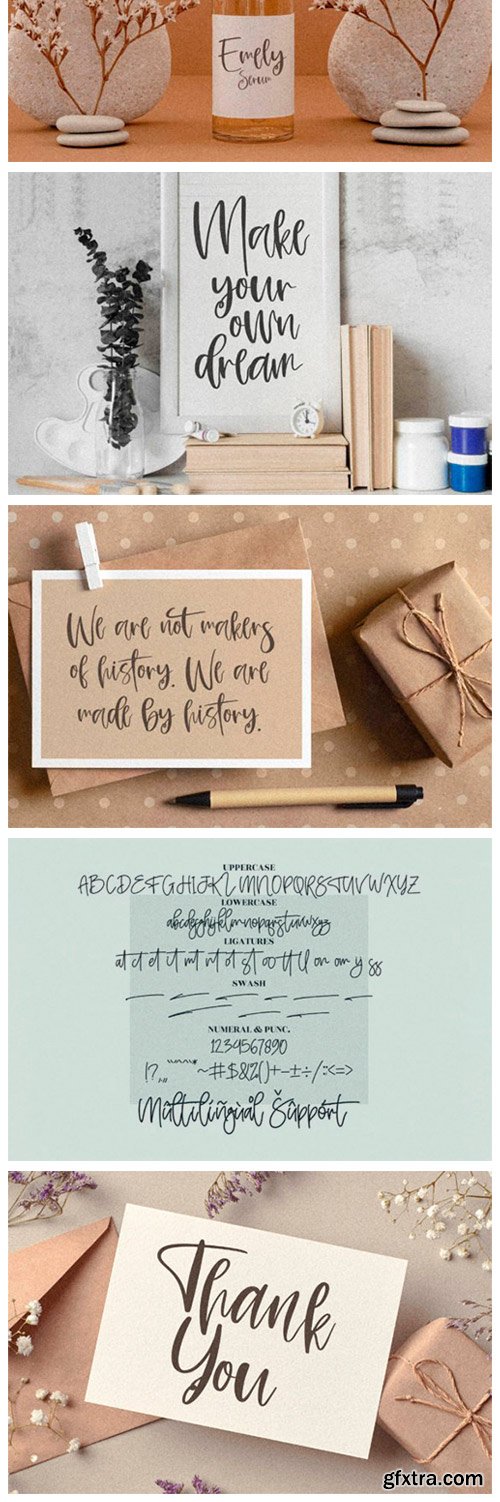 Emely
Serum
Make
your
own
dream
We are not makers
of history. We are
made by history.
UPPERCASE
ABCDEFGHIJKLMNOPQRSTUVWXYZ
LOWERCASE
abcdefghijklmnopqrstuvwxyz
LIGATURES
SWASH
NUMERAL & PUNC.
1234567890
Mûltilíñgùål Šûppórt
Thank
You
gfxtra.com